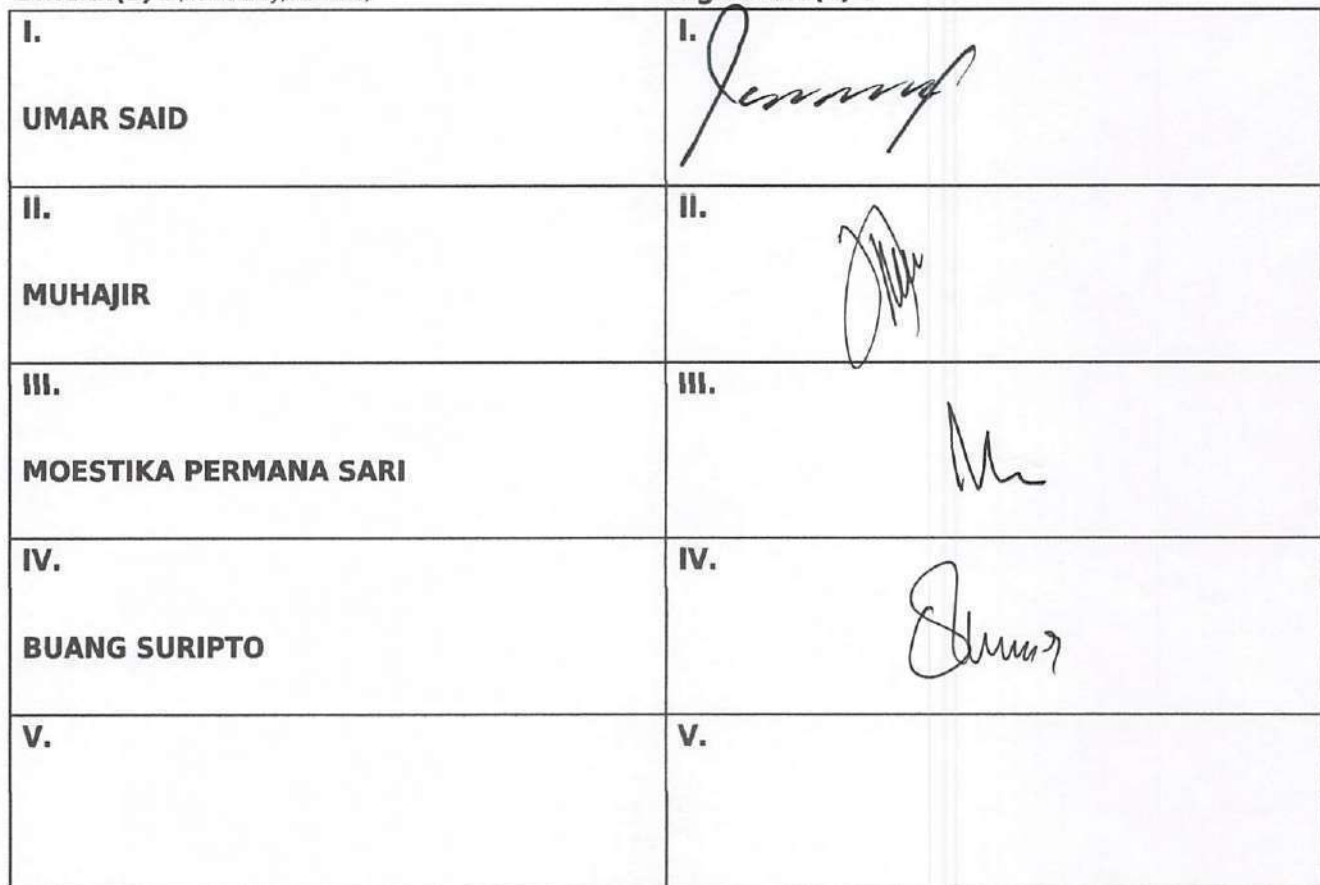 I. I.
UMAR SAID
II. II.
MUHAJIR
III. III.
MOESTIKA PERMANA SARI
IV. IV.
BUANG SURIPTO
V. V.